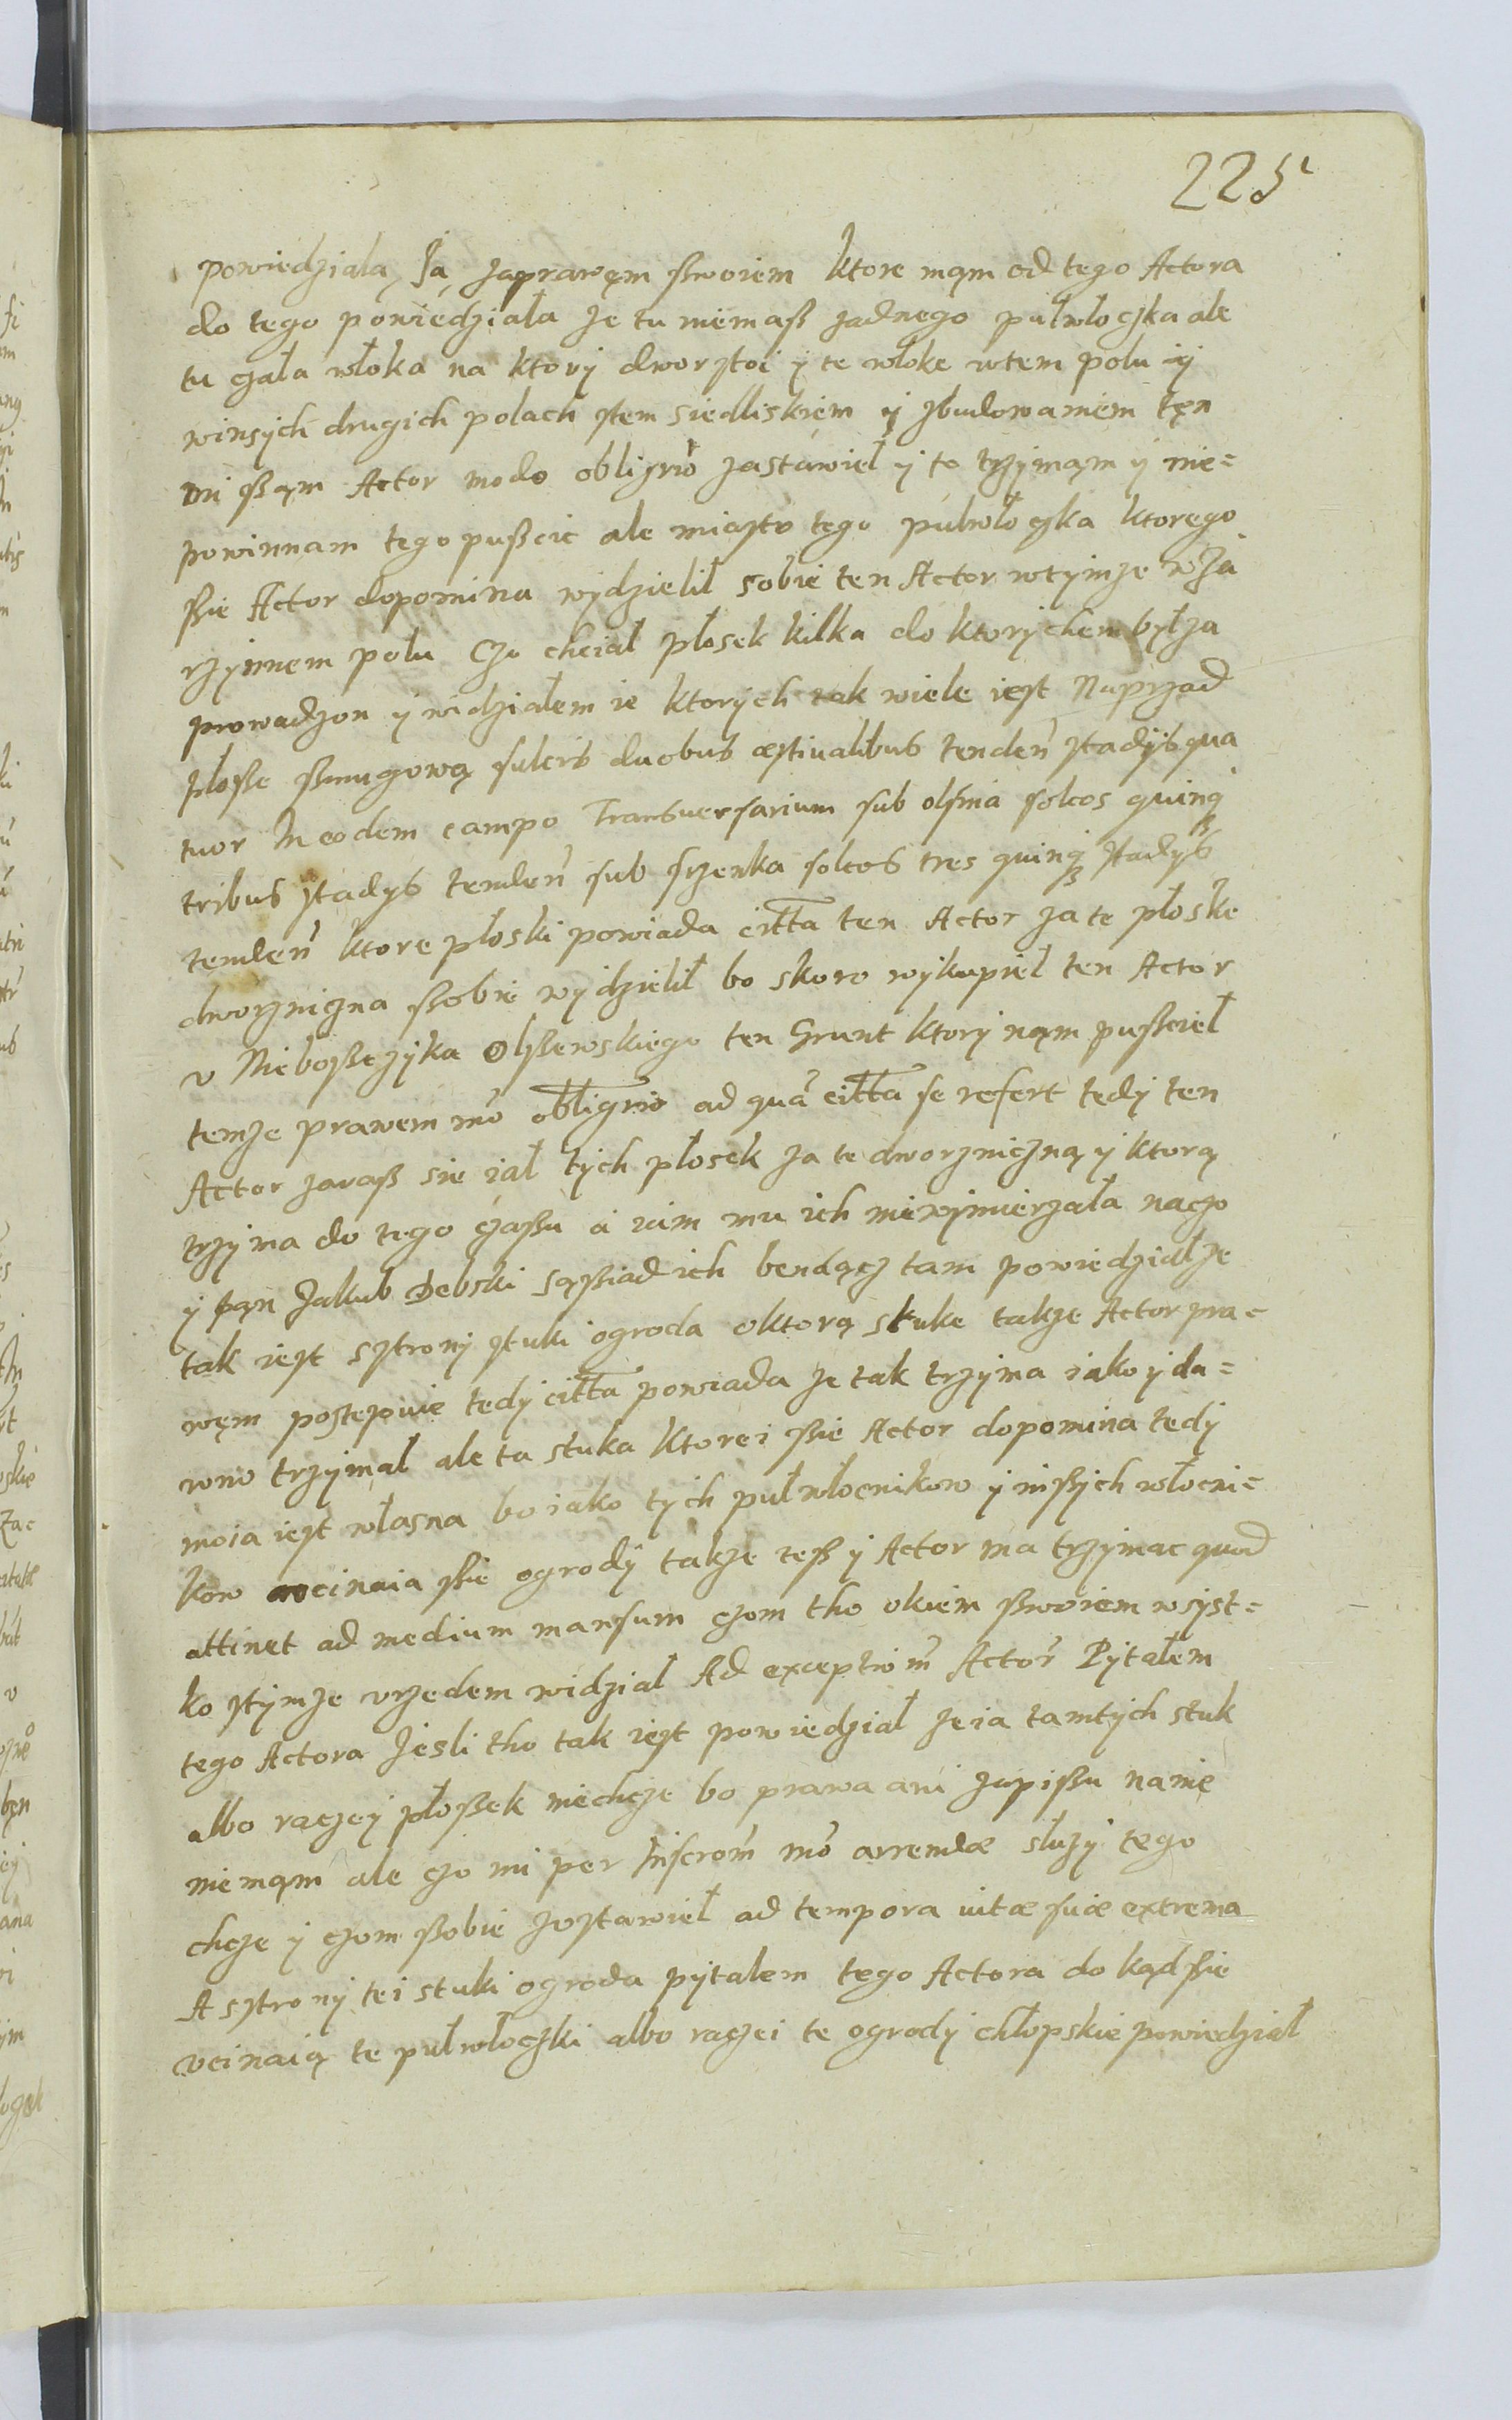 225
powiedziala Ja zaprawęm swoiem ktore mąm od tego Actora
do tego powiedziała ze tu niemasz zadnego pułwloczka ale
tu czała włoka na ktory dwor stoi y te włoke wtem polu y
winsych drugich polach stem siedliskiem y zbudowaniem tęn
mi sząm Actor modo obligrio zastawieł y to trzymąm y nie=
powinnam tego puszcic ale miasto tego pułwłoczka ktorego
szie Actor dopomina wydzielił sobie ten Actor wtymze wza
rzynnem polu Czo chciał płosek kilka do ktorychem był za
prowadzon y widziałem ie ktorych tak wiele iest Naprzad
płosse smugową sulcis duobus æstiualibus tenden stadys qua
tuor In eodem campo Transuersarium sub olsina solcos quinq
tribus stadys tenden sub srzenka solcos tres quinq stadys
tenden ktore płoski powiada citta ten Actor za te płoske
dworzniczna szobie wydzielił bo skoro wykupieł ten Actor
v Nieboszczyka Olszewskiego ten Grunt ktory nąm pusscieł
temze prawem mo obligrio ad quã citta se refert tedy ten
Actor zarasz sie iał tych płosek za te dworzniczną y ktorą
trzyma do tego czassu a iam mu ich niewymierzała naczo
y pąn Jakub Debski sąsziad ich bendącz tam powiedział ze
tak iest sztrony stuki ogroda oktorą stuke takze Actor pra=
węm postepuie tedy citta powiada ze tak trzyma iako y da=
wno trzymał ale ta stuka ktorei szie Actor dopomina tedy
moia iest własna bo iako tych pułwłocnikow y inszych włocni=
kow vcinaia szie ogrody takze tesz y Actor ma trzymac quod
attinet ad medium mansum czom tho okiem swoiem wsyst=
ko stymze vrzedem widział Ad exceptiom Actor Pytałem
tego Actora Jesli tho tak iest powiedział ze ia tamtych stuk
albo raczey płossek niechcze bo prawa ani zapissu na nie
niemąm ale czo mi per Inscrom mo arrendæ słuzy tego
chcze y czom szobie zostawieł ad tempora uitæ suæ extrema
A sztrony tei stuki ogroda pytalem tego Actora do kąd szie
vcinaią te pułwłoczki albo raczei te ogrody chłopskie powiedział